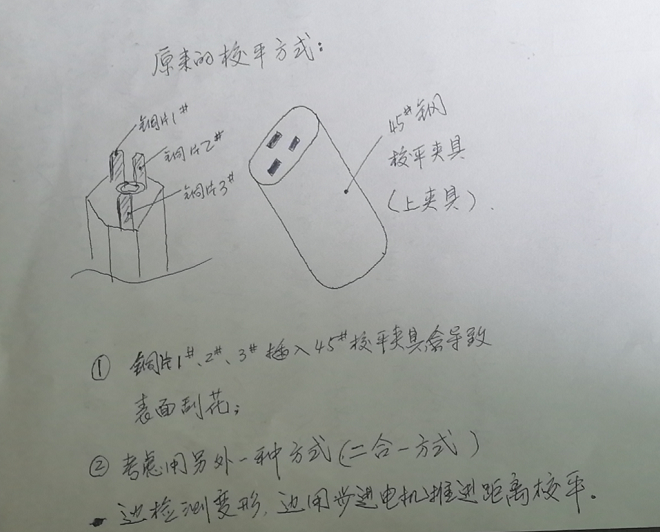 原来的校平方式:
铜片1#
铜片2#
铜片3#
45#钢
校平夹具
(上夹具).
① 铜片1#、2#、3#插入45#校平夹具会导致
表面刮花;
② 考虑用另外一种方式(二合一方式)
边检测变形,边用步进电机推进距离校平.